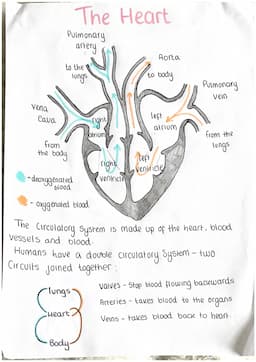 The Heart
Pulmonary
artery
Aorta
to the
lungs
to body
Pulmonary
vein
Vena
Cava
right
atrium
left
atrium
from
the body
from the
lungs
right
ventricle
left
ventricle
-deoxygenated
blood
- oxygenated blood
The Circulatory System is made up of the heart, blood
vessels and blood.
Humans have a double circulatory System - two
Circuits joined together:
lungs
heart
Body
valves - Stop blood flowing backwards
Arteries - takes blood to the organs
Veins - takes blood back to heart.